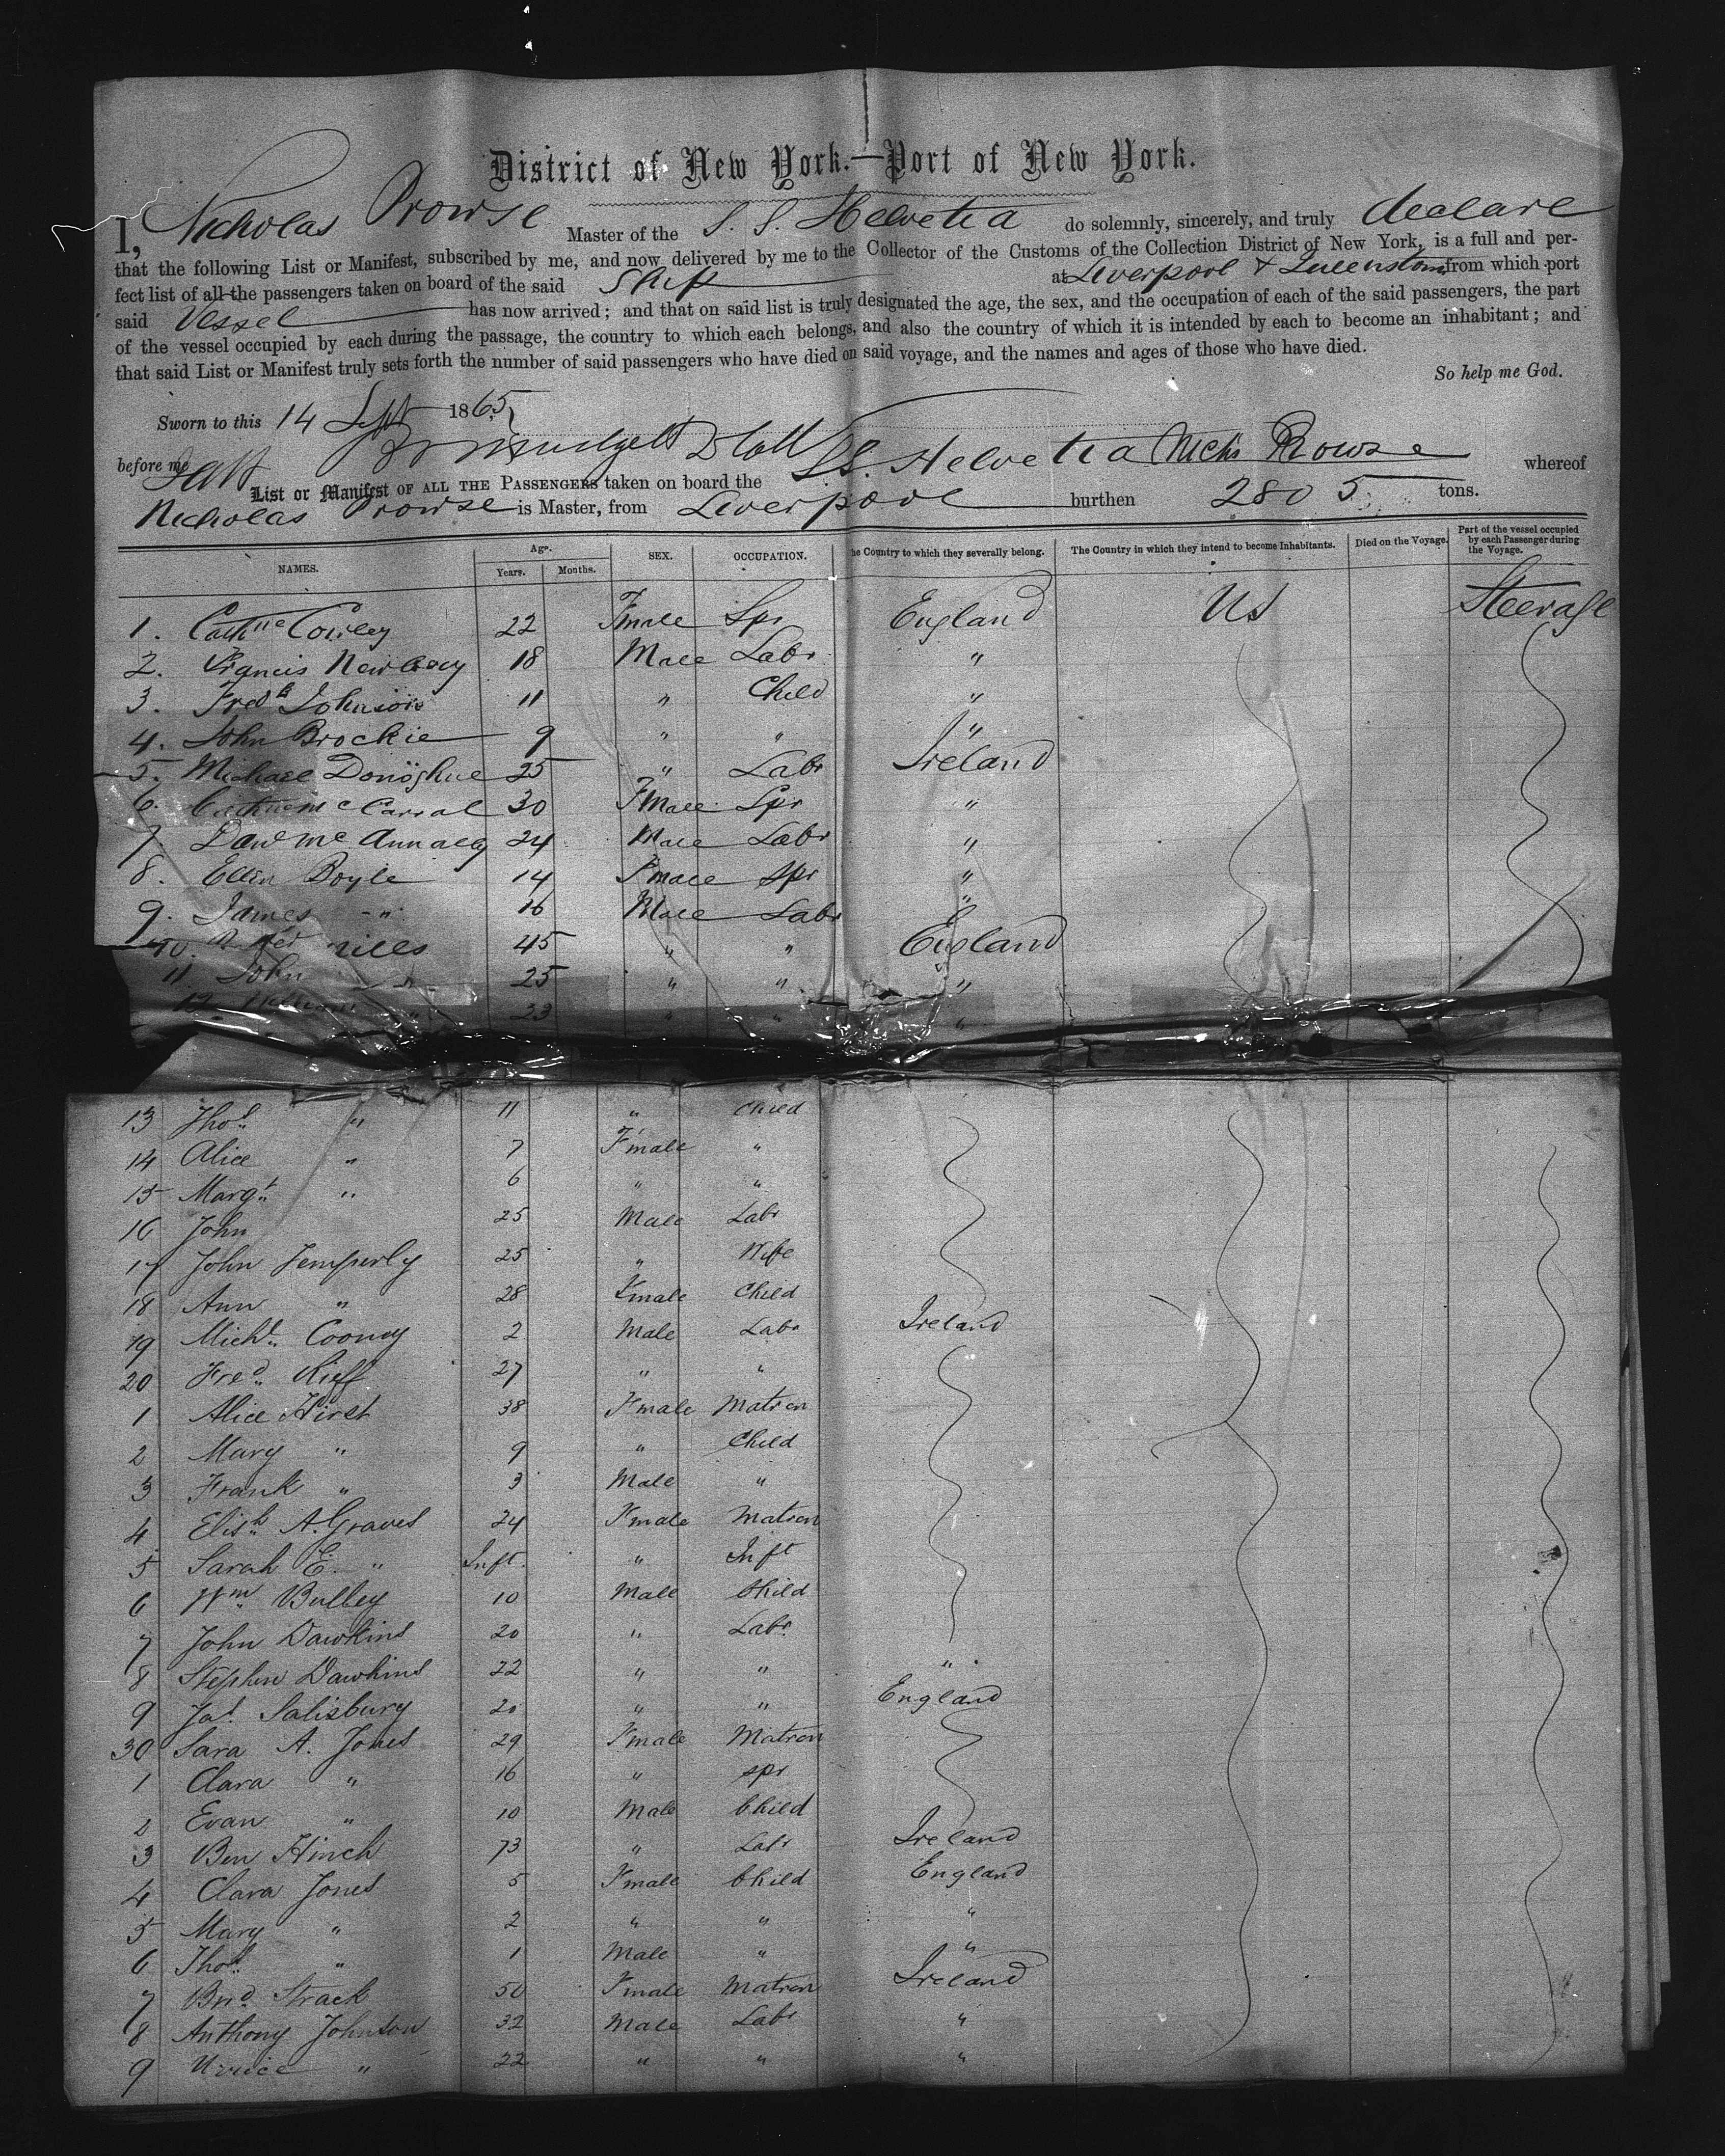 District of New York.—Port of New York.
I, Nicholas Prowse Master of the S. S. Helvetia do solemnly, sincerely, and truly declare
that the following List or Manifest, subscribed by me, and now delivered by me to the Collector of the Customs of the Collection District of New York, is a full and per-
fect list of all the passengers taken on board of the said Ship at Liverpool & Queenstown from which port
said Vessel has now arrived; and that on said list is truly designated the age, the sex, and the occupation of each of the said passengers, the part
of the vessel occupied by each during the passage, the country to which each belongs, and also the country of which it is intended by each to become an inhabitant; and
that said List or Manifest truly sets forth the number of said passengers who have died on said voyage, and the names and ages of those who have died.
So help me God.
Sworn to this 14 Sept 1865
before me Nichs Prowse
List or Manifest OF ALL THE PASSENGERS taken on board the S.S. Helvetia whereof
Nicholas Prowse is Master, from Liverpool burthen 2805 tons.
NAMES. Age. Years. Months. SEX. OCCUPATION. he Country to which they severally belong. The Country in which they intend to become Inhabitants. Died on the Voyage. Part of the vessel occupied by each Passenger during the Voyage.
1. Cathne Cowley 22 Fmale Spr England US Steerage
2. Francis 18 Male Labr "
3. Fredk Johnson 11 " Child "
4. John Brockie 9 " " "
5. Michael Donoghue 25 " Labr Ireland
6. Cathne Mc Carral 30 Fmale Spr "
7. Danl Mc Annally 24 Male Labr "
8. Ellen Boyle 14 Fmale Spr "
9. James " 16 Male Labr "
10. 45 " " England
11 John " 25 " " "
12. 23 " " "
13 Thos " 11 " Child
14 Alice " 7 Fmale "
15 Margt " 6 " "
16 John 25 Male Labr
17 John Temperly 25 " Wife
18 Ann " 28 Fmale Child
19 Michl Cooney 2 Male Labr Ireland
20 Fred Kieff 27 " "
1 Alice Hirst 38 Fmale Matron
2 Mary " 9 " Child
3 Frank " 3 Male "
4 Elisth A. Graves 24 Fmale Matron
5 Sarah E. " Inft. " Inft
6 Wm Bulley 10 Male Child
7 John Dawkins 20 " Labr
8 Stephen Dawkins 22 " " "
9 Jas Salisbury 20 " " England
30 Sara A. Jones 29 Fmale Matron
1 Clara " 16 " spr
2 Evan " 10 Male Child
3 Ben Hinch 73 " Labr Ireland
4 Clara Jones 5 Fmale Child England
5 Mary " 2 " " "
6 Thos " 1 Male " "
7 Brd Strack 50 Fmale Matron Ireland
8 Anthony Johnson 32 Male Labr "
9 " 22 " " "